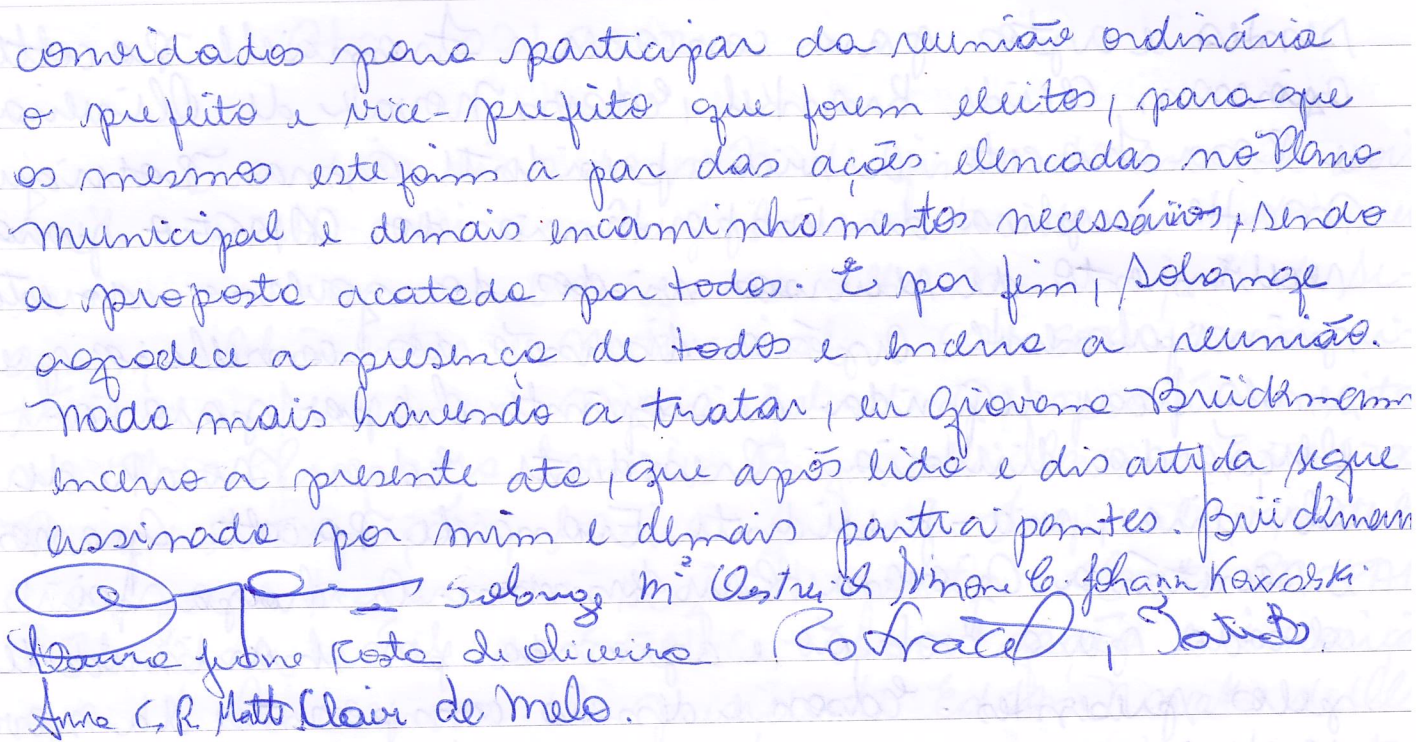 convidados para participar da reunião ordinária
o prefeito e vice-prefeito que forem eleitos, para que
os mesmos estejam a par das ações elencadas no Plano
Municipal e demais encaminhamentos necessários, sendo
a proposta acatada por todos. E por fim, Solange
agradece a presença de todos e encerra a reunião.
Nada mais havendo a tratar, eu Giovana Brüickmann
encerro a presente ata, que após lida e discutida, segue
assinada por mim e demais participantes. Brüickmann
Solange Mª Oestreich Simone C. Johann
Ivone Costa de Oliveira
Anna C. R. Clair de Melo.